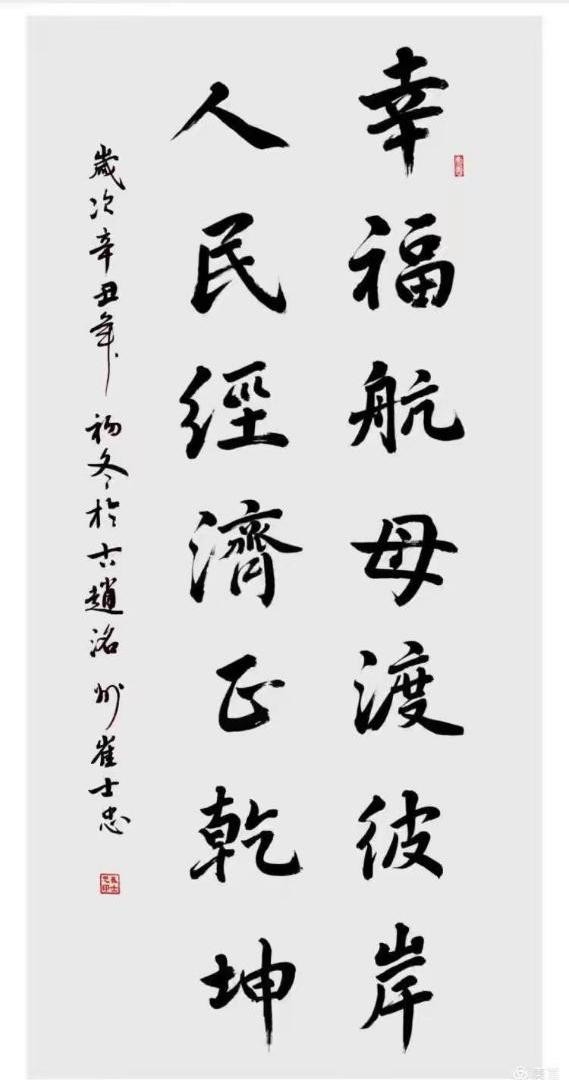 幸福航母渡彼岸
人民經濟正乾坤
歲次辛丑年初冬於古趙洺州崔士忠